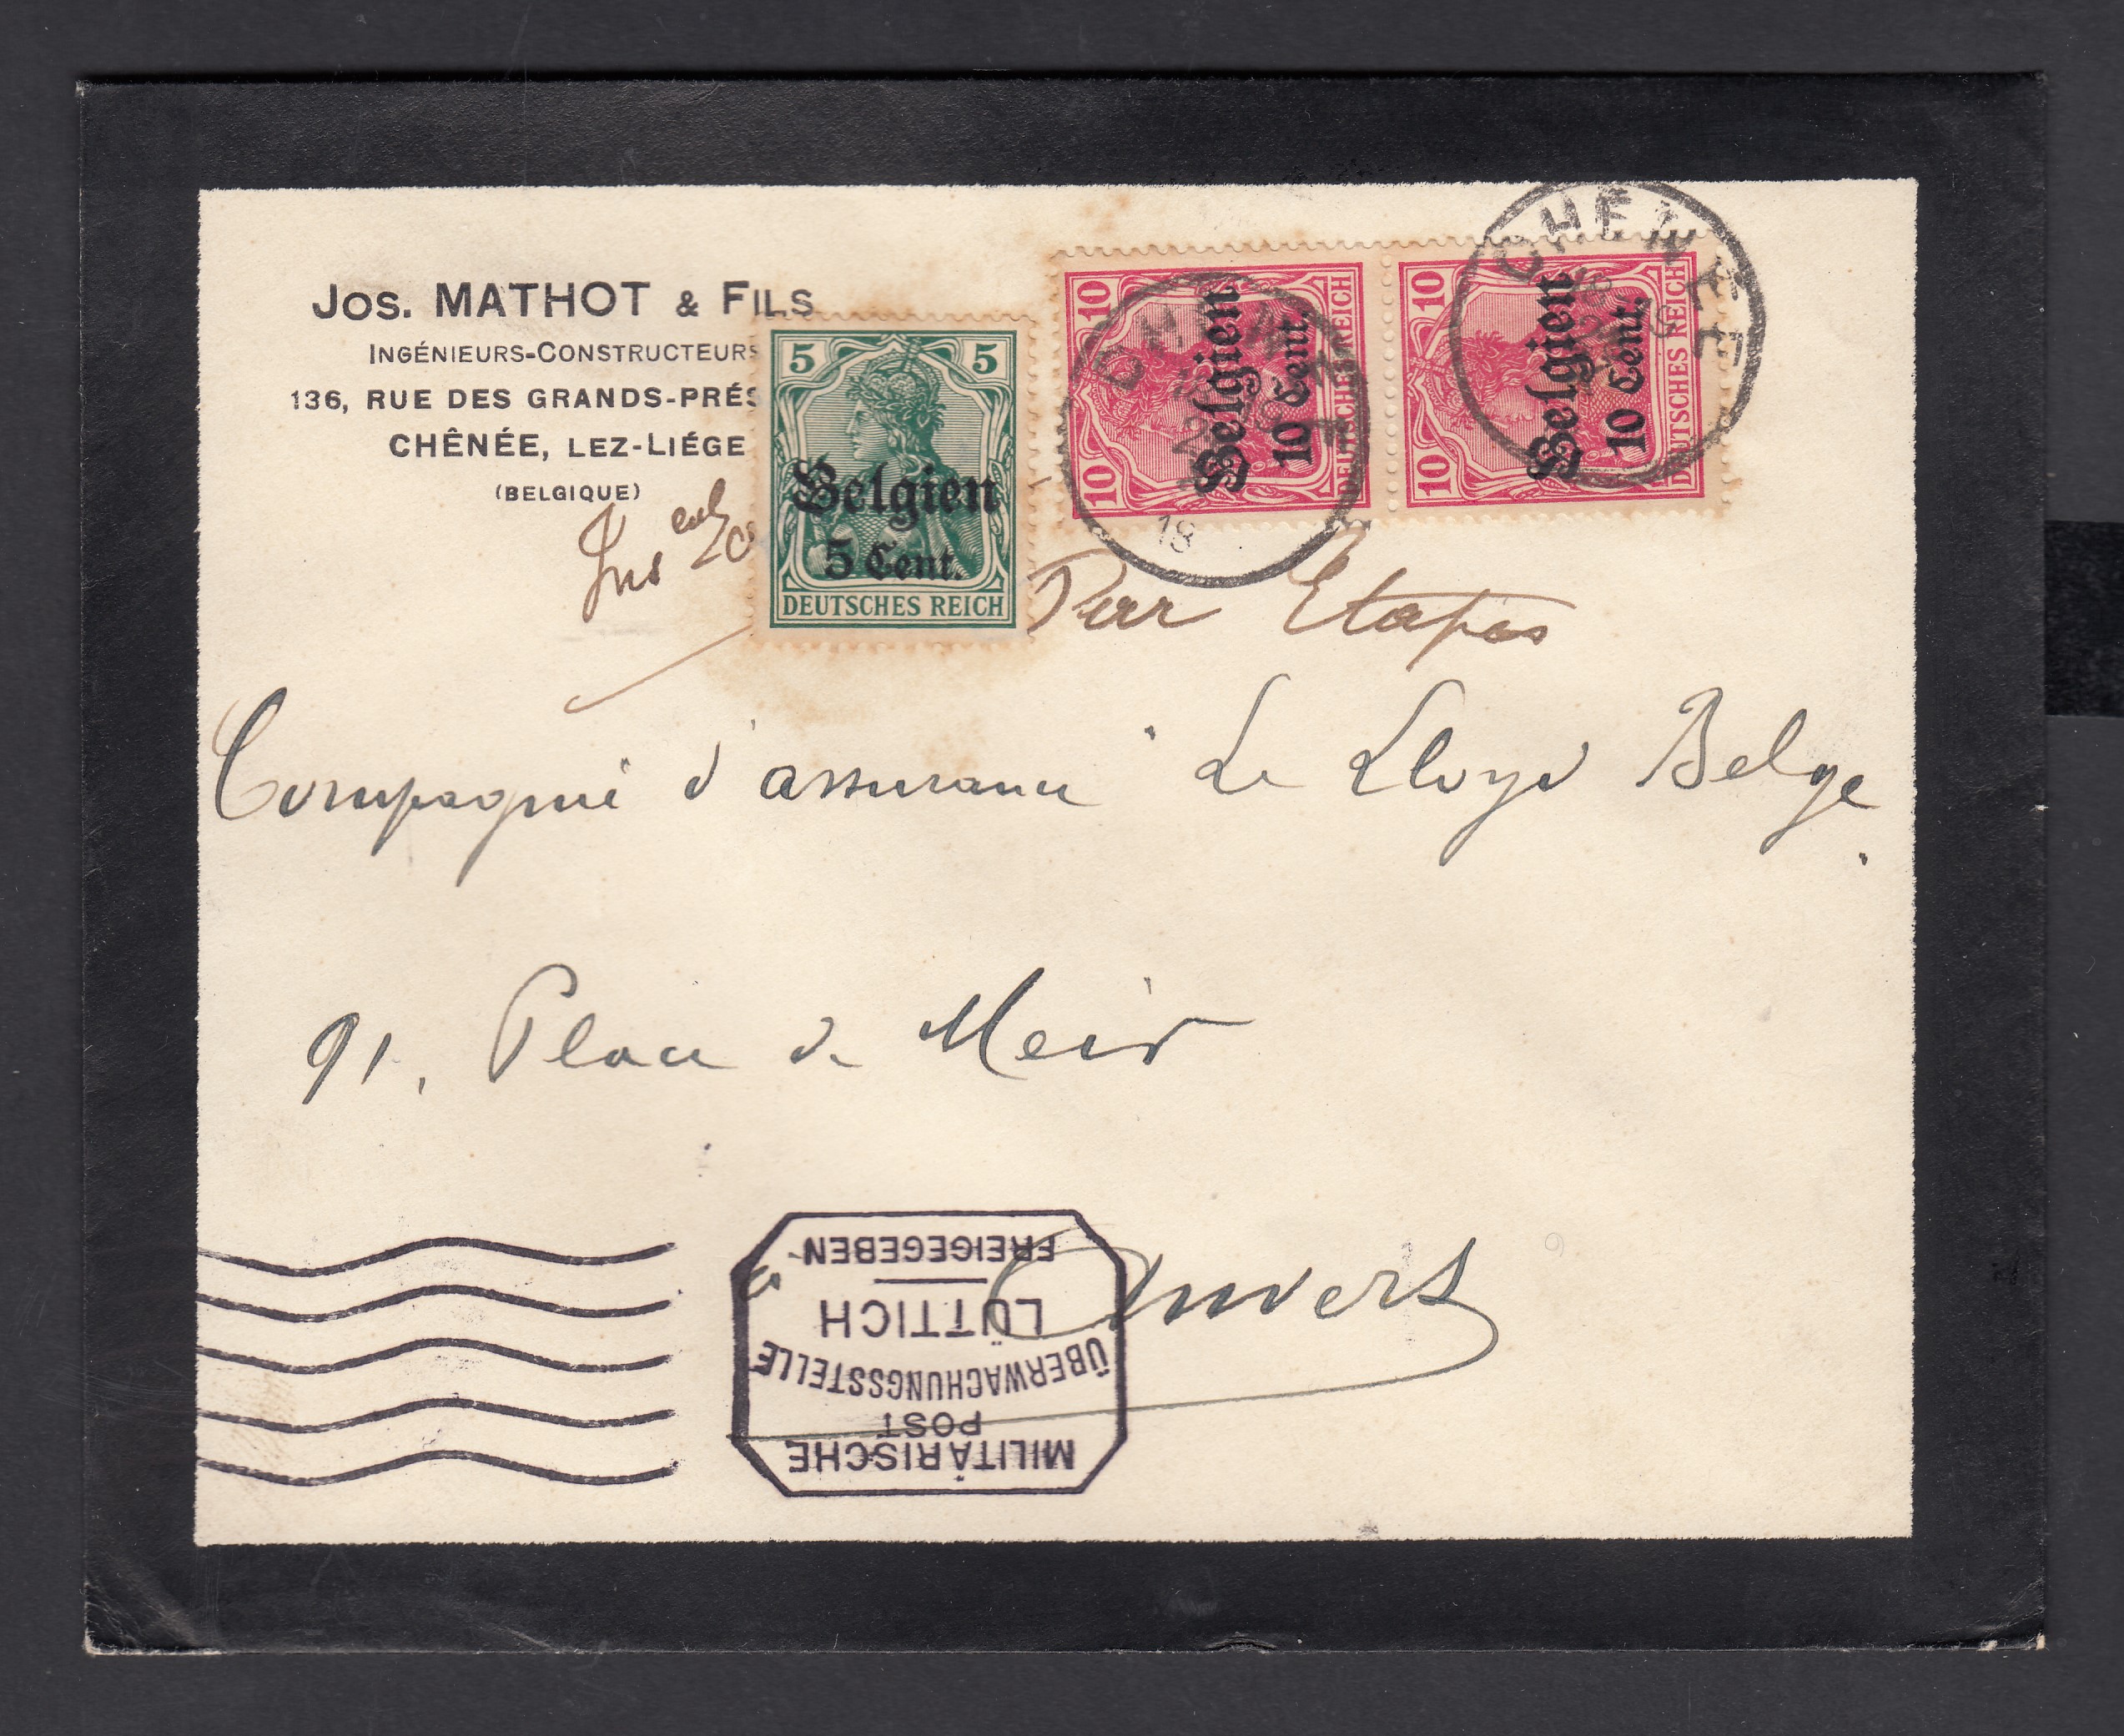 Jos. MATHOT & FILS
INGÉNIEURS-CONSTRUCTEURS
136, RUE DES GRANDS-PRÉS
CHÊNÉE, LEZ-LIÉGE
(BELGIQUE)
5 5
Belgien
5 Cent.
DEUTSCHES REICH
10 10
Belgien
10 Cent.
DEUTSCHES REICH
10 10
Belgien
10 Cent.
DEUTSCHES REICH
CHENEE
18
CHENEE
Par Etapes
Compagnie d'assurance "Le Lloyd Belge
91, Place de Meir
Anvers
MILITÄRISCHE
POST
ÜBERWACHUNGSSTELLE
LÜTTICH
FREIGEGEBEN